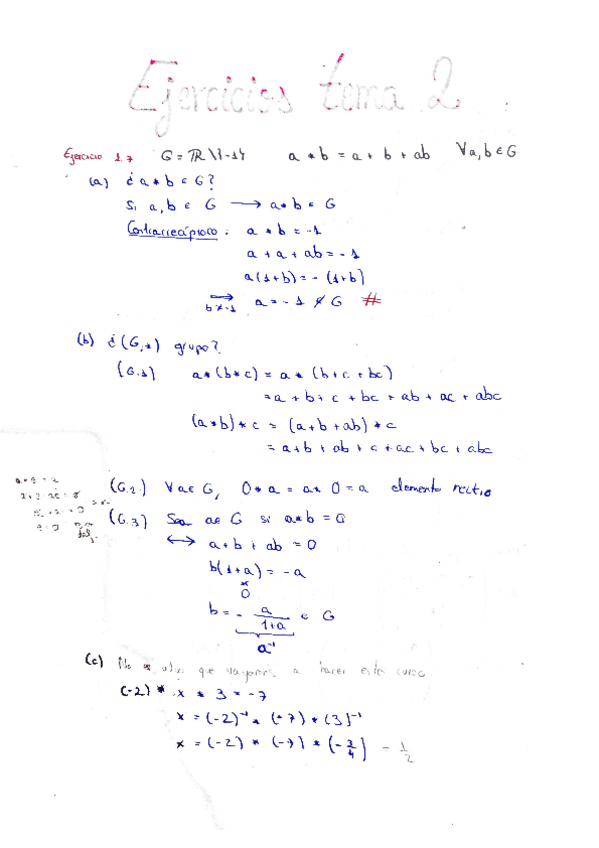 Ejercicios tema 2
Ejercicio 1.7 G = ℝ\{-1} a * b = a + b + ab ∀a, b ∈ G
(a) ¿a * b ∈ G?
Si a, b ∈ G ⟶ a * b ∈ G
Contrarrecíproco: a * b = -1
a + a + ab = -1
a(1+b) = -(1+b)
⟹ b ≠ -1 a = -1 ∉ G #
(b) ¿(G, *) grupo?
(G.1) a * (b * c) = a * (b + c + bc)
= a + b + c + bc + ab + ac + abc
(a * b) * c = (a + b + ab) * c
= a + b + ab + c + ac + bc + abc
(G.2) ∀a ∈ G, 0 * a = a * 0 = a elemento
(G.3) Sea a ∈ G si a * b = 0
⟷ a + b + ab = 0
b(1+a) = -a
≠
0
b = - a/(1+a) ∈ G
a⁻¹
(c) que vayamos a hacer este curso
(-2) * x * 3 = -7
x = (-2)⁻¹ * (-7) * (3)⁻¹
x = (-2) * (-7) * (-3/4) = 1/2